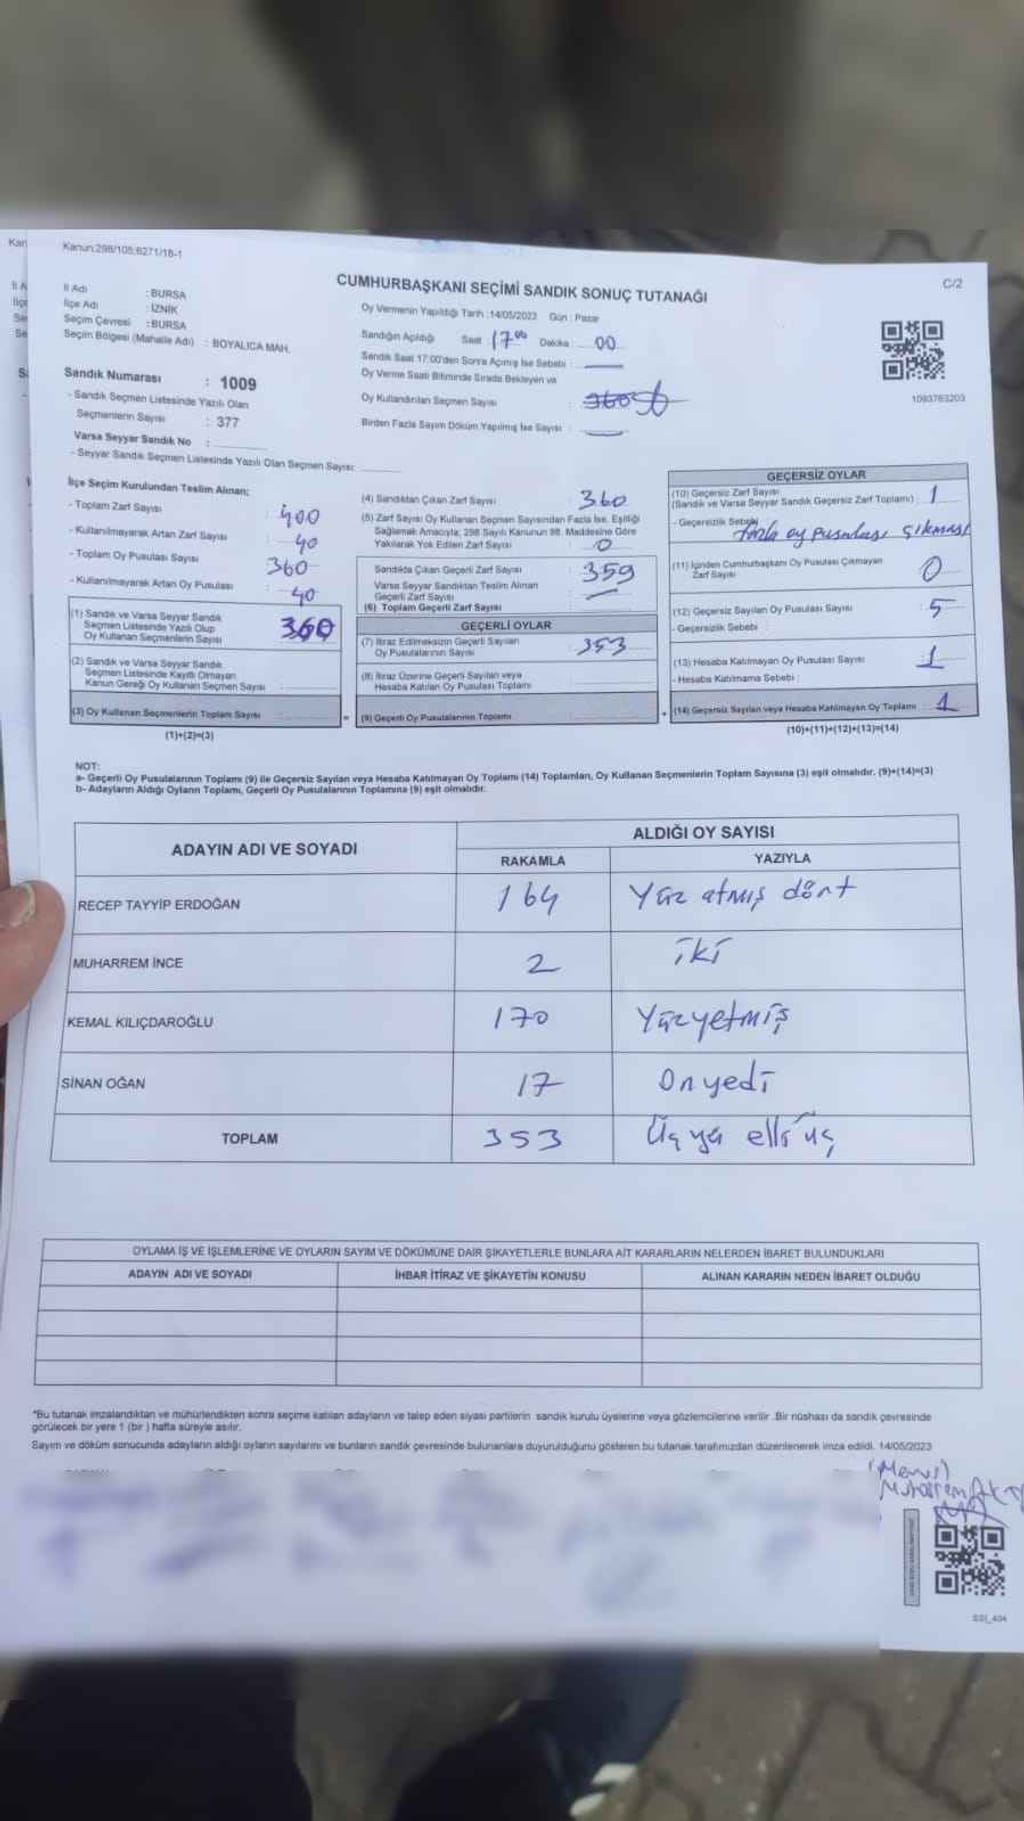 Kanun:298/105;6271/18-1
CUMHURBAŞKANI SEÇİMİ SANDIK SONUÇ TUTANAĞI
C/2
İl Adı : BURSA
İlçe Adı : İZNİK
Seçim Çevresi : BURSA
Seçim Bölgesi (Mahalle Adı) : BOYALICA MAH.
Oy Vermenin Yapıldığı Tarih :14/05/2023 Gün : Pazar
Sandığın Açıldığı Saat : 17 00 Dakika : 00
Sandık Saat 17:00'den Sonra Açılmış İse Sebebi :
Oy Verme Saati Bitiminde Sırada Bekleyen ve
Oy Kullandırılan Seçmen Sayısı :
Birden Fazla Sayım Döküm Yapılmış İse Sayısı :
1093763203
Sandık Numarası : 1009
- Sandık Seçmen Listesinde Yazılı Olan
Seçmenlerin Sayısı : 377
Varsa Seyyar Sandık No :
- Seyyar Sandık Seçmen Listesinde Yazılı Olan Seçmen Sayısı:
İlçe Seçim Kurulundan Teslim Alınan;
- Toplam Zarf Sayısı : 400
- Kullanılmayarak Artan Zarf Sayısı : 40
- Toplam Oy Pusulası Sayısı 360
- Kullanılmayarak Artan Oy Pusulası : 40
(1) Sandık ve Varsa Seyyar Sandık
Seçmen Listesinde Yazılı Olup
Oy Kullanan Seçmenlerin Sayısı 360
(2) Sandık ve Varsa Seyyar Sandık
Seçmen Listesinde Kayıtlı Olmayan
Kanun Gereği Oy Kullanan Seçmen Sayısı
(3) Oy Kullanan Seçmenlerin Toplam Sayısı
(1)+(2)=(3)
(4) Sandıktan Çıkan Zarf Sayısı : 360
(5) Zarf Sayısı Oy Kullanan Seçmen Sayısından Fazla İse, Eşitliği
Sağlamak Amacıyla; 298 Sayılı Kanunun 98. Maddesine Göre
Yakılarak Yok Edilen Zarf Sayısı : 0
Sandıkta Çıkan Geçerli Zarf Sayısı : 359
Varsa Seyyar Sandıktan Teslim Alınan
Geçerli Zarf Sayısı :
(6) Toplam Geçerli Zarf Sayısı
GEÇERLİ OYLAR
(7) İtiraz Edilmeksizin Geçerli Sayılan
Oy Pusulalarının Sayısı : 353
(8) İtiraz Üzerine Geçerli Sayılan veya
Hesaba Katılan Oy Pusulası Toplamı
(9) Geçerli Oy Pusulalarının Toplamı
GEÇERSİZ OYLAR
(10) Geçersiz Zarf Sayısı
(Sandık ve Varsa Seyyar Sandık Geçersiz Zarf Toplamı) : 1
- Geçersizlik Sebebi fazla oy pusulası çıkması
(11) İçinden Cumhurbaşkanı Oy Pusulası Çıkmayan
Zarf Sayısı : 0
(12) Geçersiz Sayılan Oy Pusulası Sayısı : 5
- Geçersizlik Sebebi :
(13) Hesaba Katılmayan Oy Pusulası Sayısı : 1
- Hesaba Katılmama Sebebi :
(14) Geçersiz Sayılan veya Hesaba Katılmayan Oy Toplamı : 1
(10)+(11)+(12)+(13)=(14)
NOT:
a- Geçerli Oy Pusulalarının Toplamı (9) ile Geçersiz Sayılan veya Hesaba Katılmayan Oy Toplamı (14) Toplamları, Oy Kullanan Seçmenlerin Toplam Sayısına (3) eşit olmalıdır. (9)+(14)=(3)
b- Adayların Aldığı Oyların Toplamı, Geçerli Oy Pusulalarının Toplamına (9) eşit olmalıdır.
ADAYIN ADI VE SOYADI
ALDIĞI OY SAYISI
RAKAMLA YAZIYLA
RECEP TAYYİP ERDOĞAN 164 Yüz atmış dört
MUHARREM İNCE 2 iki
KEMAL KILIÇDAROĞLU 170 Yüzyetmiş
SİNAN OĞAN 17 Onyedi
TOPLAM 353 Üç yü elli üç
OYLAMA İŞ VE İŞLEMLERİNE VE OYLARIN SAYIM VE DÖKÜMÜNE DAİR ŞİKAYETLERLE BUNLARA AİT KARARLARIN NELERDEN İBARET BULUNDUKLARI
ADAYIN ADI VE SOYADI İHBAR İTİRAZ VE ŞİKAYETİN KONUSU ALINAN KARARIN NEDEN İBARET OLDUĞU
*Bu tutanak imzalandıktan ve mühürlendikten sonra seçime katılan adayların ve talep eden siyasi partilerin sandık kurulu üyelerine veya gözlemcilerine verilir. Bir nüshası da sandık çevresinde
görülecek bir yere 1 (bir ) hafta süreyle asılır.
Sayım ve döküm sonucunda adayların aldığı oyların sayılarını ve bunların sandık çevresinde bulunanlara duyurulduğunu gösteren bu tutanak tarafımızdan düzenlenerek imza edildi. 14/05/2023
Muharrem
SSI_404